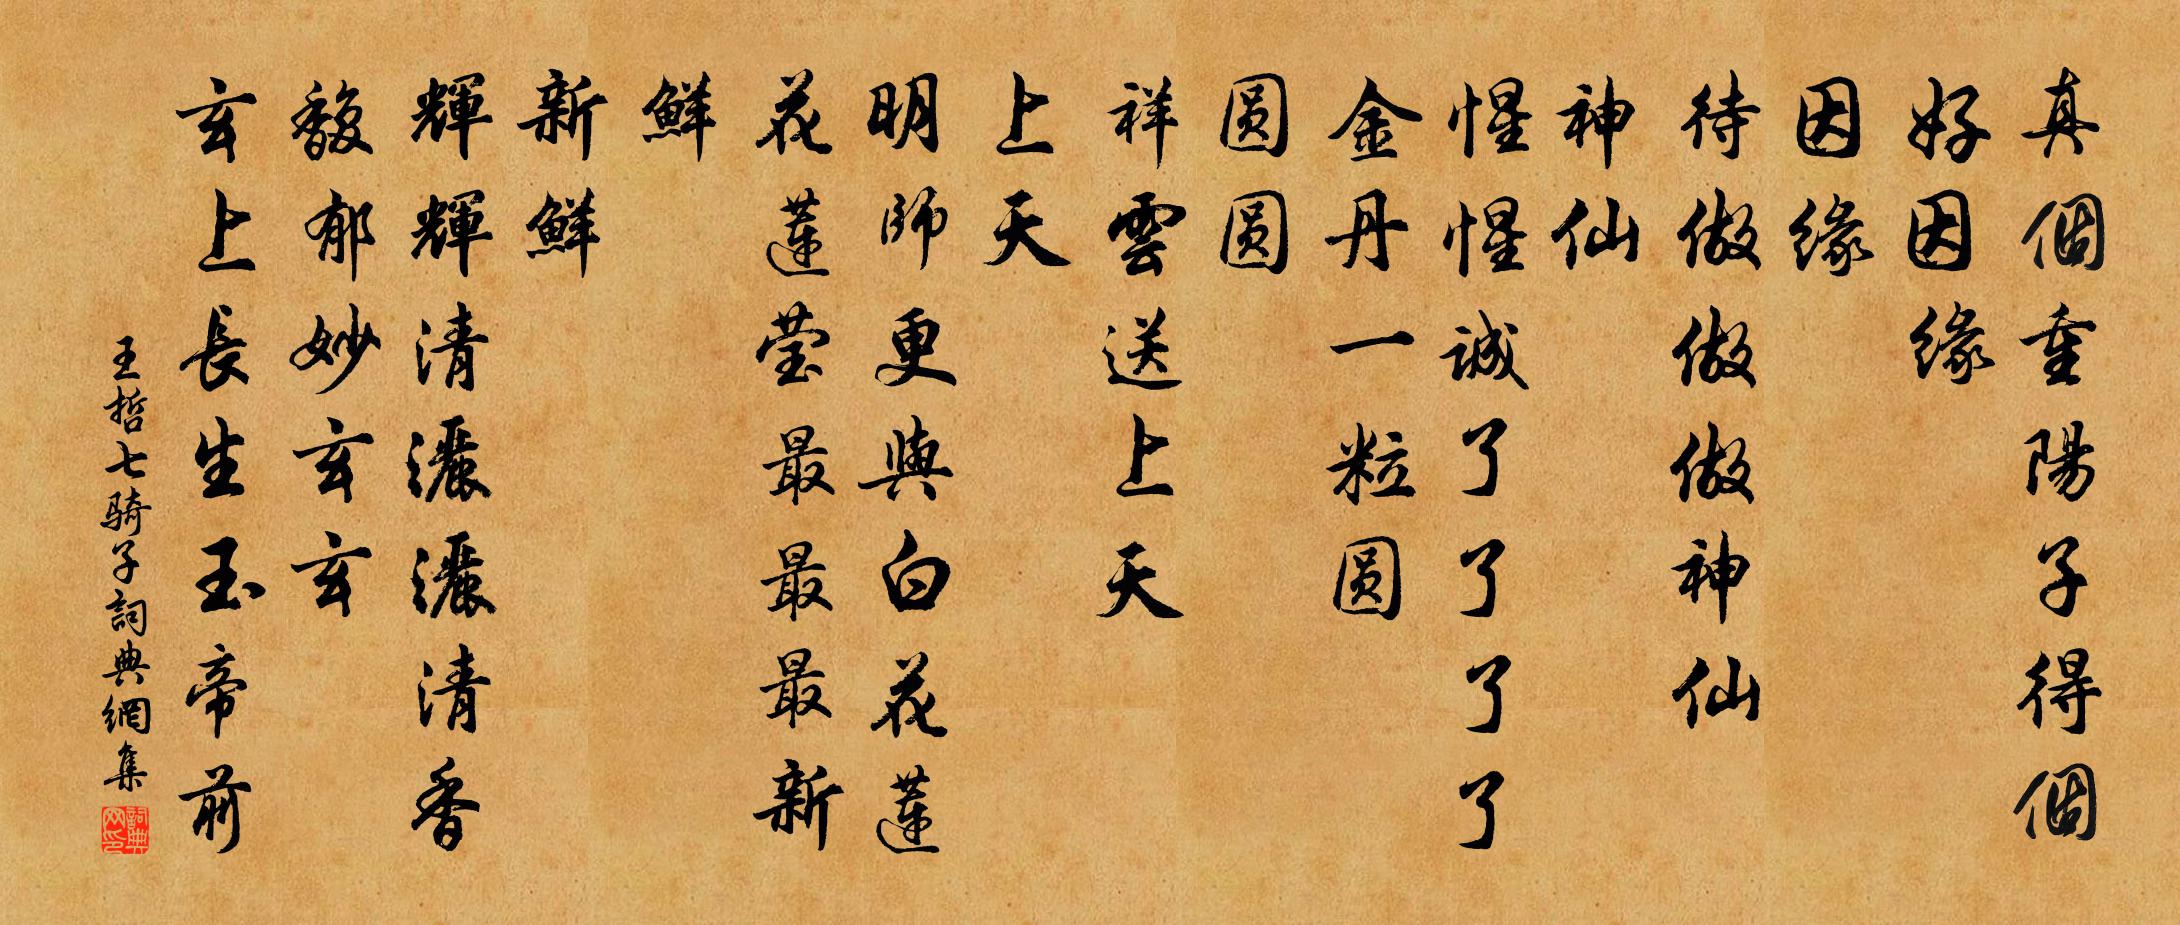 真個重陽子得個
好因緣
因緣
待做做做神仙
神仙
惺惺誠了了了了
金丹一粒圓
圓圓
祥雲送上天
上天
明師更與白花蓮
花蓮瑩最最最新
鮮
新鮮
輝輝清灑灑清香
馥郁妙玄玄
玄上長生玉帝前
王哲七騎子詞典網集
詞典网印